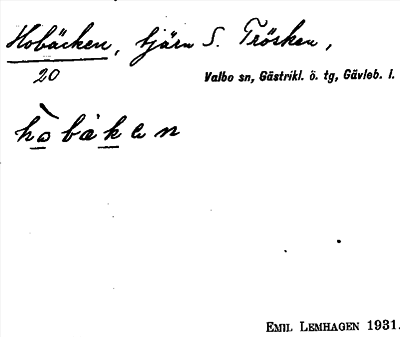 Hobäcken, tjärn S. Trösken,
20
Valbo sn, Gästrikl. ö. tg, Gävleb. l.
hòbákən
EMIL LEMHAGEN 1931.